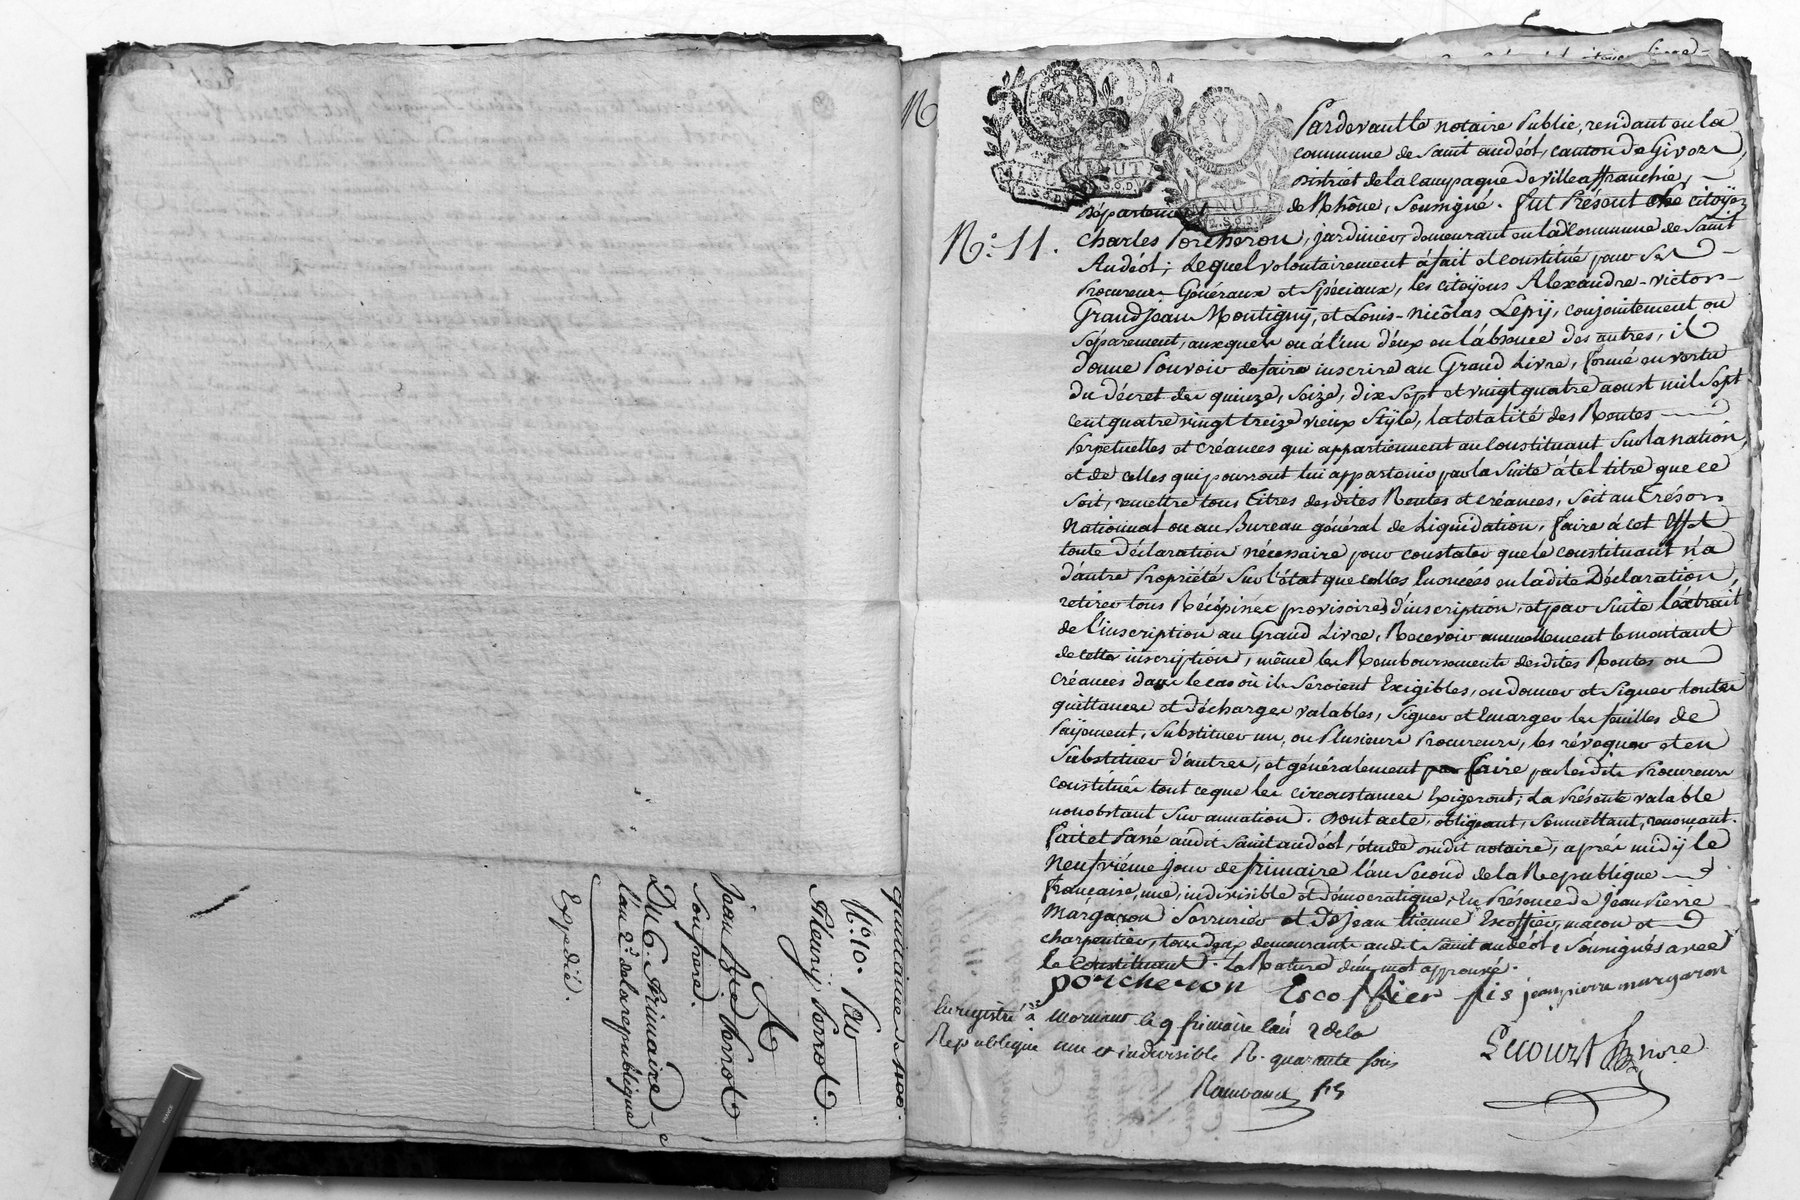 quittance de noce.
N.º 10. Pour
Fleurÿ Perrot
A
Jean Bpte Perrot
son frere.
Du 6. frimaire
l'an 2.d de la republique
Expedié.
Pardevant le notaire Public, rendant en la
commune de Saint andéol, canton de Givors,
District de la Campagne de ville affranchie,
Département de Rhône, soussigné. fut Présent le citoÿen
N.º 11.
MINUTE
2.S.6.D.
Charles Porcheron, jardinier, demeurant en la d. Commune de Saint
Andéol; Lequel volontairement à fait et constitué pour ses
Procureurs Généraux et Spéciaux, les citoÿens Alexandre-victor-
GrandJean Montignÿ, et Louis-nicôlas Lepÿ, conjointement ou
Séparement, auxquels ou à l'un d'eux en l'absence des autres, il
donne Pouvoir de faire inscrire au Grand Livre, formé en vertu
du décret des quinze, seize, dix sept et vingt quatre aoust mil sept
cent quatre vingt treize vieux Stÿle, la totalité des Rentes
Perpetuelles et créances qui appartiennent au Constituant sur la nation,
et de celles qui pourront lui appartenir par la suite à tel titre que ce
soit, remettre tous titres desdites Rentes et créances, soit au Trésor
National ou au Bureau général de Liquidation, faire à cet Effet
toute déclaration nécessaire pour constater que le constituant n'a
d'autre Propriété sur l'état que celles Enoncées en ladite Déclaration,
retirer tous Récépissés provisoires d'inscription, et par suite l'éxtrait
de l'inscription au Grand Livre, Recevoir annuellement le montant
de cette inscription, même les Remboursements desdites Rentes ou
Créances dans le cas où ils seroient Exigibles, en donner et signer toutes
quittances et décharges valables, signer et Emarger les feuilles de
Païement, substituer un, ou Plusieurs Procureurs, les révoquer et en
substituer d'autres, et généralement faire par lesdits Procureurs
constitués tout ce que les circonstances Exigeront; La Présente valable
nonobstant Surannation. Dont acte, obligeant, soumettant, renonçant.
fait et Passé audit Saint andéol, étude dudit notaire, après midÿ le
neufviéme jour de frimaire l'an Second de la Republique
française, une, indivisible et démocratique, En Présence de Jean Pierre
Margaron Serrurier et de Jean Etienne Escoffier, maçon et
charpentier, tous deux demeurants audit Saint andéol, Soussignés avec
le Constituant. La Rature d'un mot approuvé.
porcheron Escoffier fis jean pierre margaron
Enregistré à mornant le 9 frimaire l'an 2 de la
Republique une et indivisible R. quarante sous
Lecourt Nore